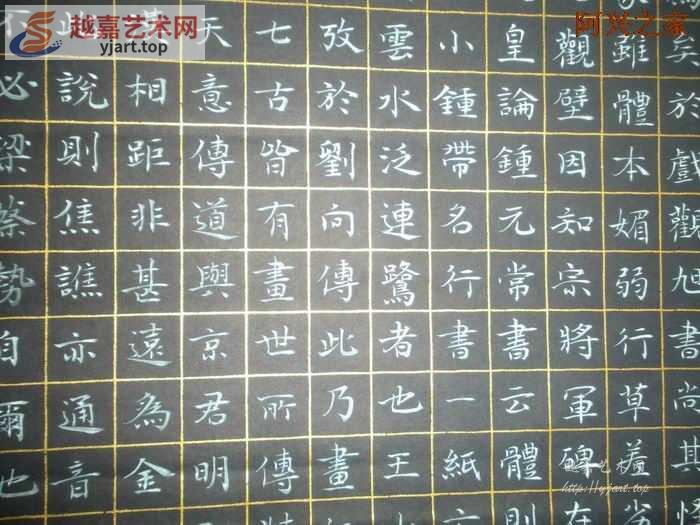 越嘉艺术网
yjart.top
阿兴之家
矣於戲觀旭書尚其怪
雖體本媚弱行草羞劣
觀壁因知宗將軍碑在
皇論鍾元常書云體則
小鍾帶名行書一紙
雲水泛連鷺者也王
攷於劉向傳此乃畫
七古皆有畫世所傳
天意傳道與京君明
相距非甚遠為金
此說則焦譙亦通音
不必梁蔡勢自爾也